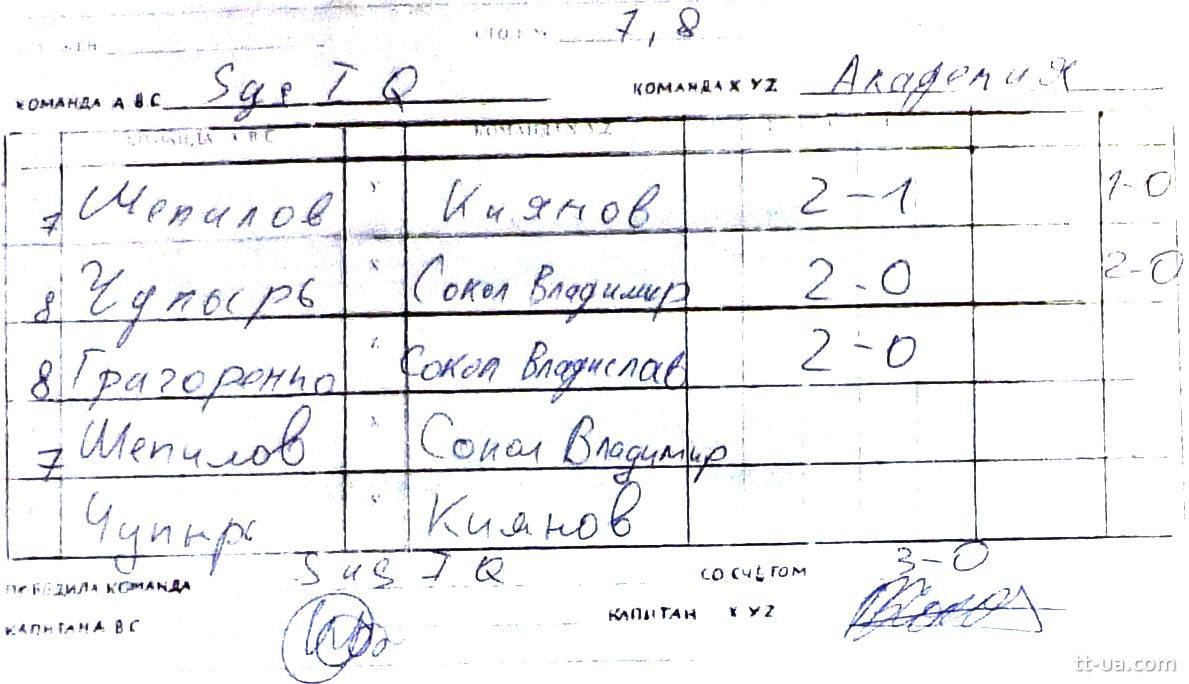 7, 8
КОМАНДА А В С Sys T Q КОМАНДА X Y Z Академия
КОМАНДА А В С КОМАНДА X Y Z
7 Шепилов x Киянов 2-1 1-0
8 Чупырь x Сокол Владимир 2-0 2-0
8 x Сокол Владислав 2-0
7 Шепилов x Сокол Владимир
Чупырь x Киянов
ПОБЕДИЛА КОМАНДА Sys T Q СО СЧЕТОМ 3-0
КАПИТАН А В С КАПИТАН X Y Z
tt-ua.com